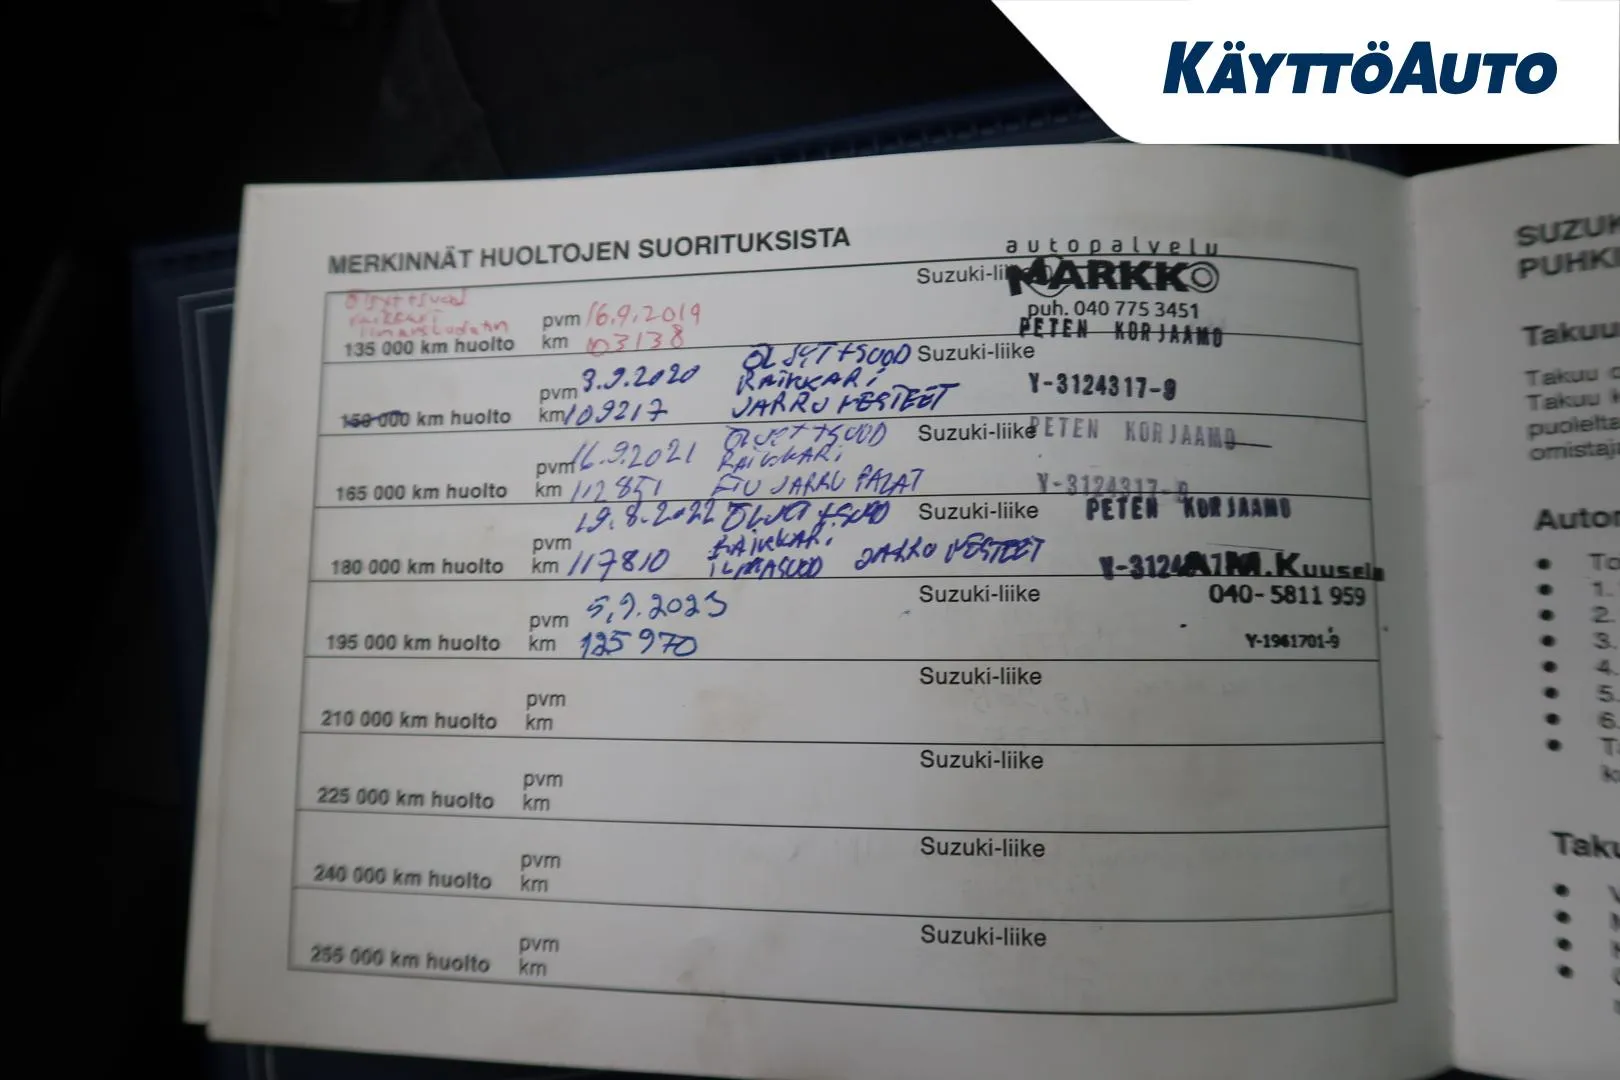 KÄYTTÖAUTO
MERKINNÄT HUOLTOJEN SUORITUKSISTA
autopalvelu
MARKKO
puh. 040 775 3451
Suzuki-li
Öljyt+suod
raikkari
pvm 16.9.2019
135 000 km huolto km 103138
PETEN KORJAAMO
ÖLJYT+SUOD Suzuki-liike
pvm 3.9.2020 RAIKKARI Y-3124317-9
150 000 km huolto km 109217 JARRU NESTEET
ÖLJYT+SUOD Suzuki-liike PETEN KORJAAMO
pvm 16.9.2021 RAIKKARI
165 000 km huolto km 112851 ETU JARRU PALAT Y-3124317-9
19.8.2022 ÖLJYT+SUOD Suzuki-liike PETEN KORJAAMO
pvm RAIKKARI
180 000 km huolto km 117810 ILMASUOD JARRU NESTEET Y-3124 A.M.Kuusela
Suzuki-liike 040-5811 959
pvm 5.9.2023
195 000 km huolto km 125970 Y-1961701-9
Suzuki-liike
pvm
210 000 km huolto km
Suzuki-liike
pvm
225 000 km huolto km
Suzuki-liike
pvm
240 000 km huolto km
Suzuki-liike
pvm
255 000 km huolto km
SUZUK
PUHKI
Takuu
Takuu
Takuu
puolelta
omistaj
Auton
To
1.
2.
3.
4.
5.
6.
Taku